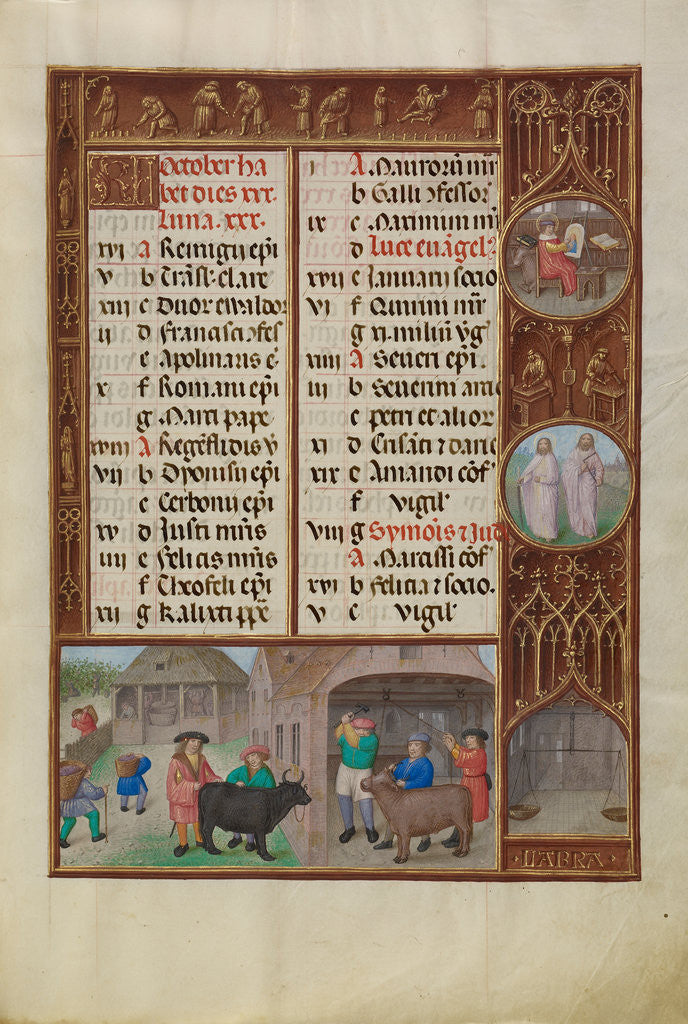 KL October ha
bet dies xxx.
Luna. xxx.
xvi A Remigij ep̄i
v b Trāsl. clare
xiii c Duor ewaldor
ii d Francisci ↄfes
e Apolinaris ē
x f Romani ep̄i
g Marci pape
xviii A Regēfl idis v̄
vii b Dyonisij ep̄i
c Cerbonij ep̄i
xv d Justi m̄ris
iiii e Felicis m̄ris
f Theofeli ep̄i
xii g Kalixti pp̄e
i A Maurorū m̄r
b Galli ↄfessor
ix c Maximini m̄
d Luce euāgel
xvii e Januarij socio
vi f Quirini m̄r
g xi. miliū v̄g
xiiii A Seueri ep̄i.
iii b Seuerini
c petri et alior
xi d Crisāti ⁊ darie
xix e Amandi cōf
f vigil
viii g Symōis ⁊ Jud
A Marcissi cōf
xvi b Felicia ⁊ socio.
v c vigil
LIABRA